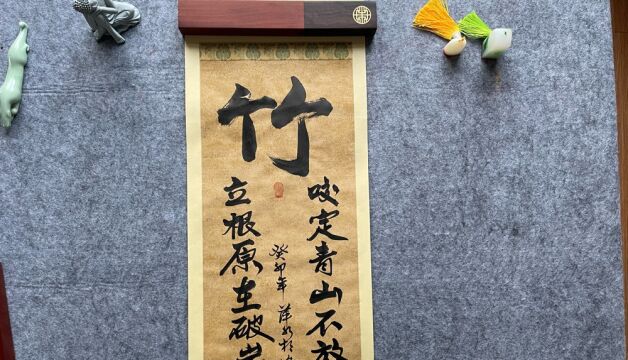 竹
咬定青山不放
立根原在破岩
癸卯年